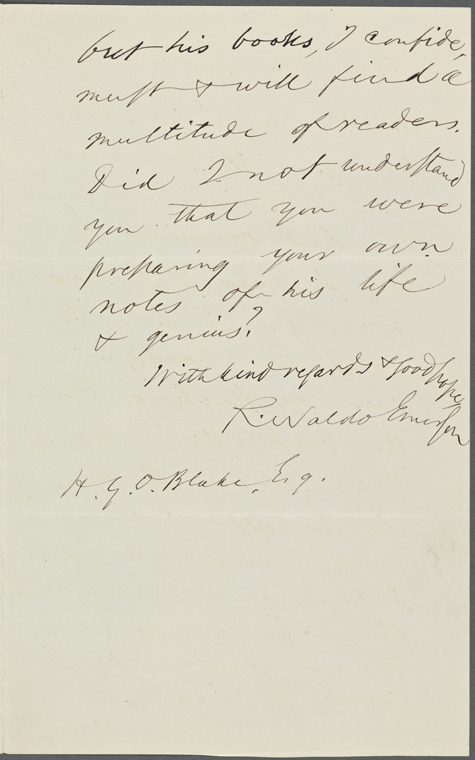 but his books, I confide,
must & will find a
multitude of readers.
Did I not understand
you that you were
preparing your own
notes of his life
& genius?
With kind regards & good hope
R. Waldo Emerson
H. G. O. Blake, Esq.